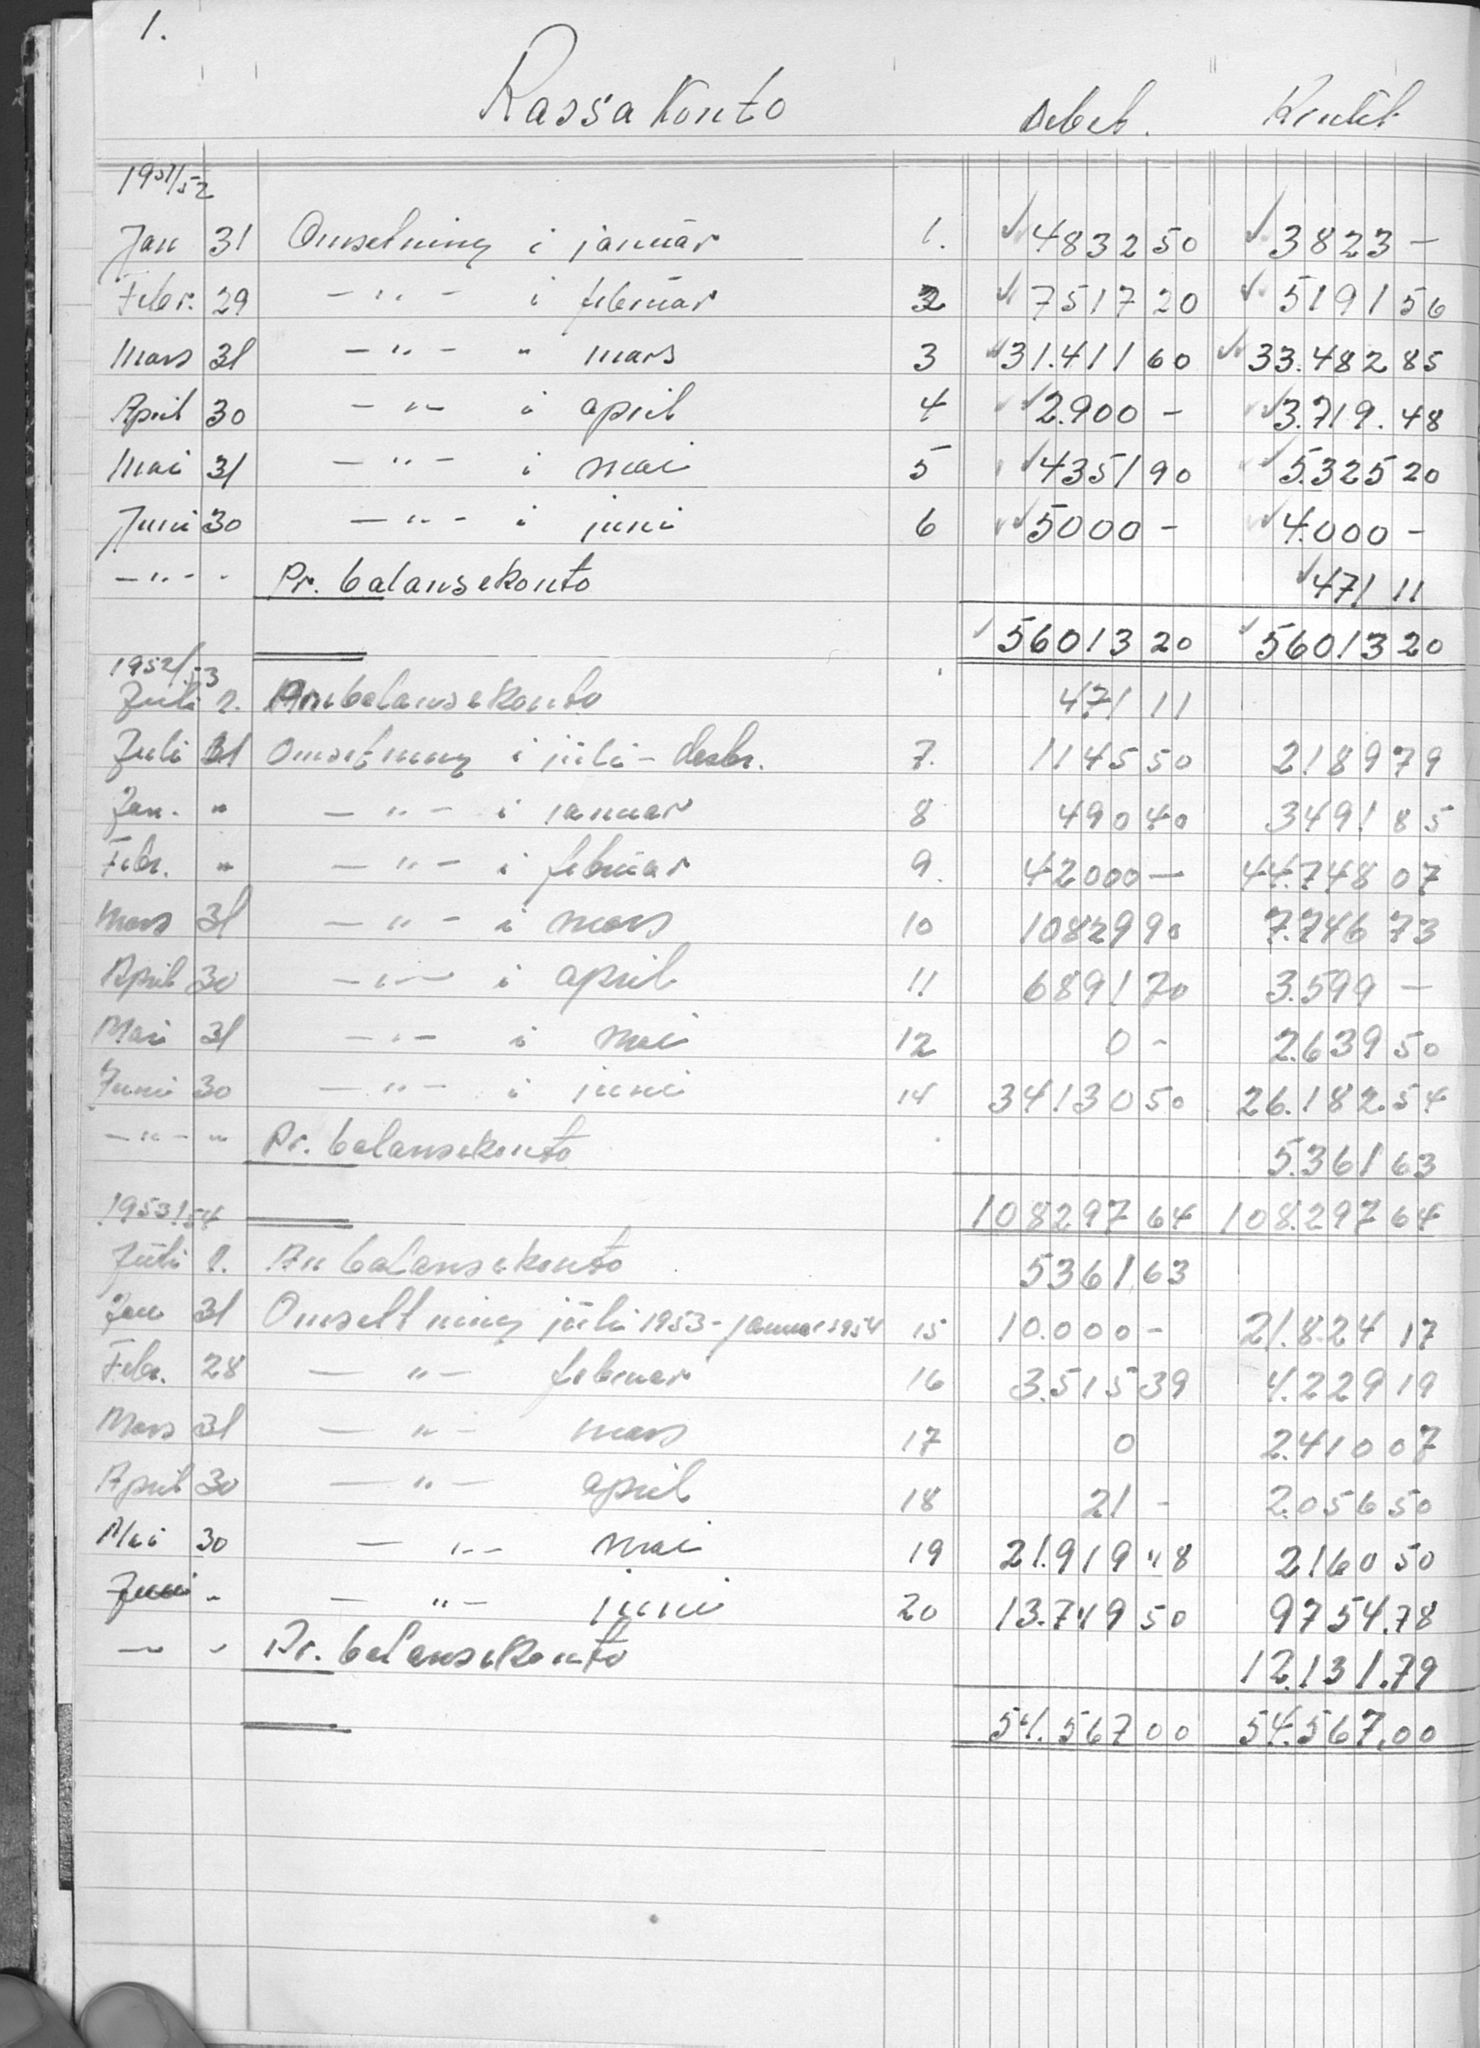 1.
Kassa Konto Debet. Kredit
1951/52
Jan 31 Omsetning i januar 1. 4832 50 3823 —
Febr. 29 — " — i februar 2 7517 20 5191 56
Mars 31 — " — " mars 3 31.411 60 33.482 85
April 30 — " — i april 4 2.900 — 3.719.48
Mai 31 — " — i mai 5 4351 90 5.325 20
Juni 30 — " — i juni 6 5000 — 4.000 —
— " — - Pr. balansekonto 471 11
56013 20 56013 20
1952/53
Juli 1. An balansekonto 471 11
Juli 31 Omsetning i juli - desbr. 7. 1145 50 2.189 79
Jan. " — " — i januar 8 490 40 3491 85
Febr. " — " — i februar 9. 42000 — 44.748 07
Mars 31 — " — i mars 10 10829 90 7.746 73
April 30 — " — i april 11 6891 70 3.599 —
Mai 31 — " — i mai 12 0 - 2.639 50
Juni 30 — " — i juni 14 34130 50 26.182.54
— " — " Pr. balansekonto 5.361 63
108297 64 108.297 64
1953/54
Juli 1. An balansekonto 5361 63
Jan 31 Omsettning juli 1953 - januar 1954 15 10.000 - 21.824 17
Febr. 28 — " — februar 16 3.515 39 4.229 19
Mars 31 — " — mars 17 0 2.410 07
April 30 — " — april 18 21 - 2.056 50
Mai 30 — " — mai 19 21.919 48 2160 50
Juni - — " — juni 20 13.749 50 9754.78
— " Pr. balansekonto 12.131.79
54.567 00 54.567.00